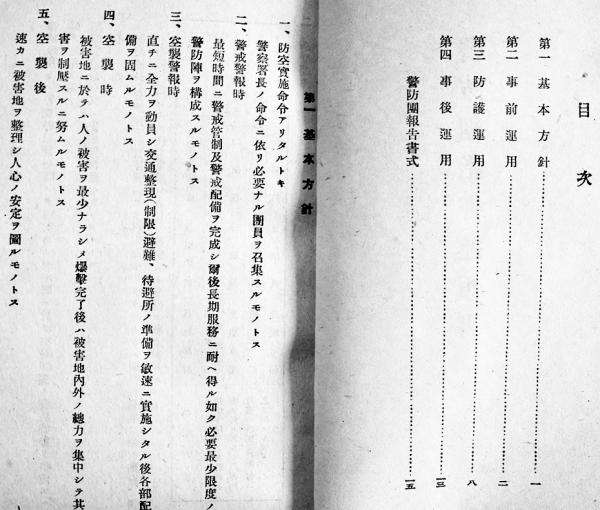 目次
第一 基本方針……一
第二 事前運用……二
第三 防護運用……八
第四 事後運用……一三
警防團報告書式……一五
第一 基本方針
一、防空實施命令アリタルトキ
警察署長ノ命令ニ依リ必要ナル團員ヲ召集スルモノトス
二、警戒警報時
最短時間ニ警戒管制及警戒配備ヲ完成シ爾後長期服務ニ耐ヘ得ル如ク必要最少限度ノ
警防陣ヲ構成スルモノトス
三、空襲警報時
直チニ全力ヲ動員シ交通整理(制限)避難、待避所ノ準備ヲ敏速ニ實施シタル後各部配
備ヲ固ムルモノトス
四、空襲時
被害地ニ於テハ人ノ被害ヲ最少ナラシメ爆擊完了後ハ被害地內外ノ總力ヲ集中シテ其
害ヲ制壓スルニ努ムルモノトス
五、空襲後
速カニ被害地ヲ整理シ人心ノ安定ヲ圖ルモノトス